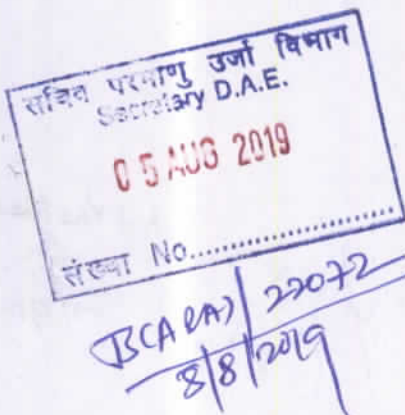 सचिव परमाणु उर्जा विभाग
Secretary D.A.E.
05 AUG 2019
संख्या No....................
22072
8/8/2019